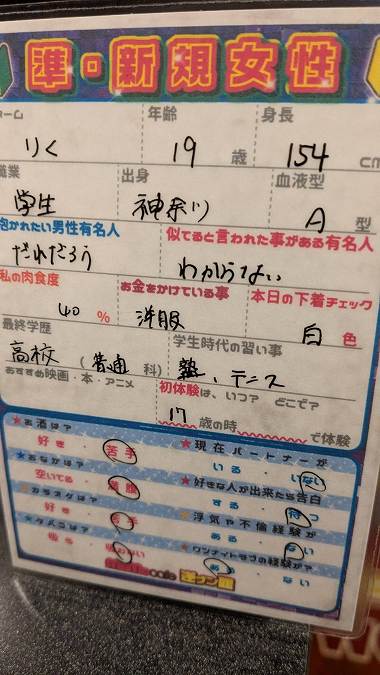 準・新規女性
ーム 年齢 身長
りく 19 歳 154 cm
職業 出身 血液型
学生 神奈川 A 型
抱かれたい男性有名人 似てると言われた事がある有名人
だれだろう わからない
私の肉食度 お金をかけている事 本日の下着チェック
40 % 洋服 白 色
最終学歴 学生時代の習い事
高校 (普通 科) 塾、テニス
おすすめ映画・本・アニメ 初体験は、いつ? どこで?
17 歳の で体験
★お酒は? ★現在パートナーが
好き・苦手 いる・いない
★おなかは? ★好きな人が出来たら告白
空いてる・満腹 する・待つ
★カラオケは? ★浮気や不倫経験が
好き・苦手 ある・ない
★タバコは? ★ワンナイトラブの経験が?
吸う・吸わない ある・ない
cafe 逆ナン